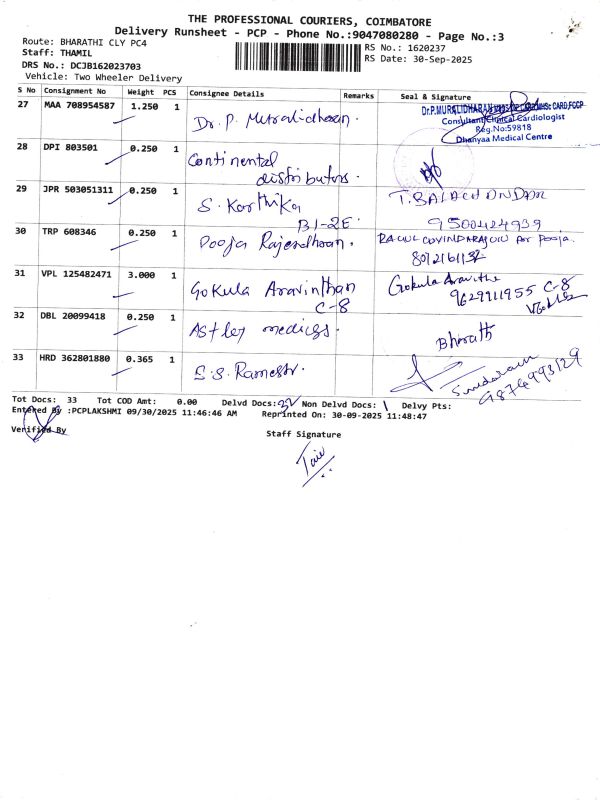 THE PROFESSIONAL COURIERS, COIMBATORE
Delivery Runsheet - PCP - Phone No.:9047080280 - Page No.:3
Route: BHARATHI CLY PC4
RS No.: 1620237
Staff: THAMIL
RS Date: 30-Sep-2025
DRS No.: DCJB162023703
Vehicle: Two Wheeler Delivery
S No Consignment No Weight PCS Consignee Details Remarks Seal & Signature
27 MAA 708954587 1.250 1 Dr. P. Muralidharan.
Dr.P.MURALIDHARAN
Consultant Clinical Cardiologist
Reg.No:59818
Dhanyaa Medical Centre
28 DPI 803501 0.250 1 Continental
distributors.
29 JPR 503051311 0.250 1 S. Karthika
B1-2E
T. BALACHANDAR
9500424939
30 TRP 608346 0.250 1 Pooja Rajendhran.
31 VPL 125482471 3.000 1 Gokula Aravinthan
C-8
Gokula Aravinthan
9629911955 C-8
32 DBL 20099418 0.250 1 Astley medicgs.
Bharath
33 HRD 362801880 0.365 1 S.S. Ramesh.
Sundaram
Tot Docs: 33 Tot COD Amt: 0.00 Delvd Docs: 32 Non Delvd Docs: 1 Delvy Pts:
Entered By :PCPLAKSHMI 09/30/2025 11:46:46 AM Reprinted On: 30-09-2025 11:48:47
Verified By
Staff Signature